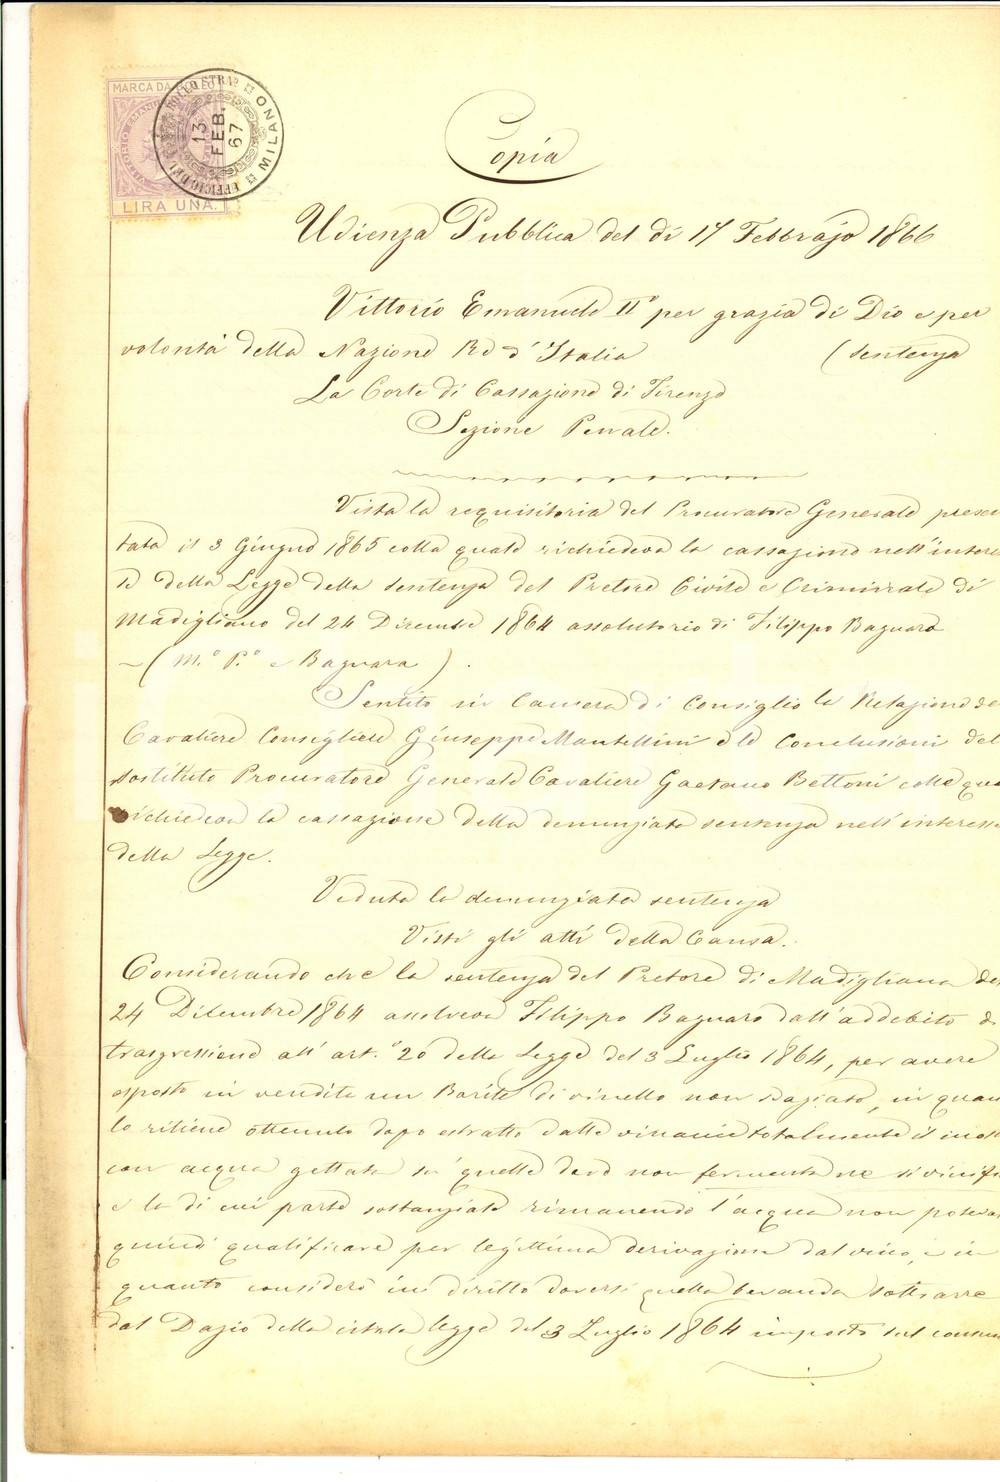 MARCA DA BOLLO
LIRA UNA.
13
FEB.
67
MILANO
Copia
Udienza Pubblica del dì 17 Febbrajo 1866
Vittorio Emanuele II° per grazia di Dio e per
volontà della Nazione Re d'Italia (sentenza
La Corte di Cassazione di Firenze
Sezione Penale.
Vista la requisitoria del Procuratore Generale presen
tata il 3 Giugno 1865 colla quale richiedeva la cassazione nell'interes
se della Legge della sentenza del Pretore Civile e Criminale di
Modigliana del 24 Dicembre 1864 assolutoria di Filippo Bagnara
~ (M.° P.° e Bagnara).
Sentito in Camera di Consiglio la Relazione del
Cavaliere Consigliere Giuseppe Mantellini e le Conclusioni del
Sostituto Procuratore Generale Cavaliere Gaetano Bettoni colle qua
richiedeva la cassazione della denunziata sentenza nell'interesse
della Legge.
Veduta la denunziata sentenza
Visti gli atti della Causa.
Considerando che la sentenza del Pretore di Madigliana del
24 Dicembre 1864 assolveva Filippo Bagnara dall'addebito di
trasgressione all'art.° 20 della Legge del 3 Luglio 1864, per avere
esposto in vendita un Barile di vinello non daziato, in quan
lo ritiene ottenuto dopo estratto dalle vinaccie totalmente il most
con acqua gettata su quelle dove non fermenta ne si vinifi
e la di cui parte sostanziale rimanendo l'acqua non poteva
quindi qualificare per legittima derivazione dal vino, e in
quanto considerò in diritto doversi quella bevanda sottrarre
dal Dazio della citata legge del 3 Luglio 1864 imposto sul consum